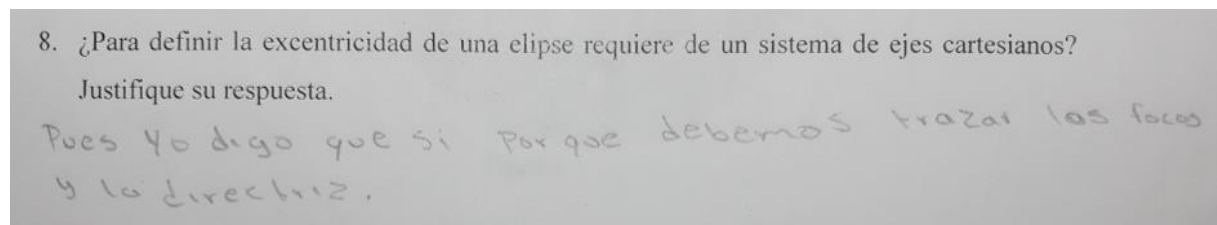 8. ¿Para definir la excentricidad de una elipse requiere de un sistema de ejes cartesianos?
Justifique su respuesta.
Pues yo digo que si porque debemos trazar los focos
y la directriz.